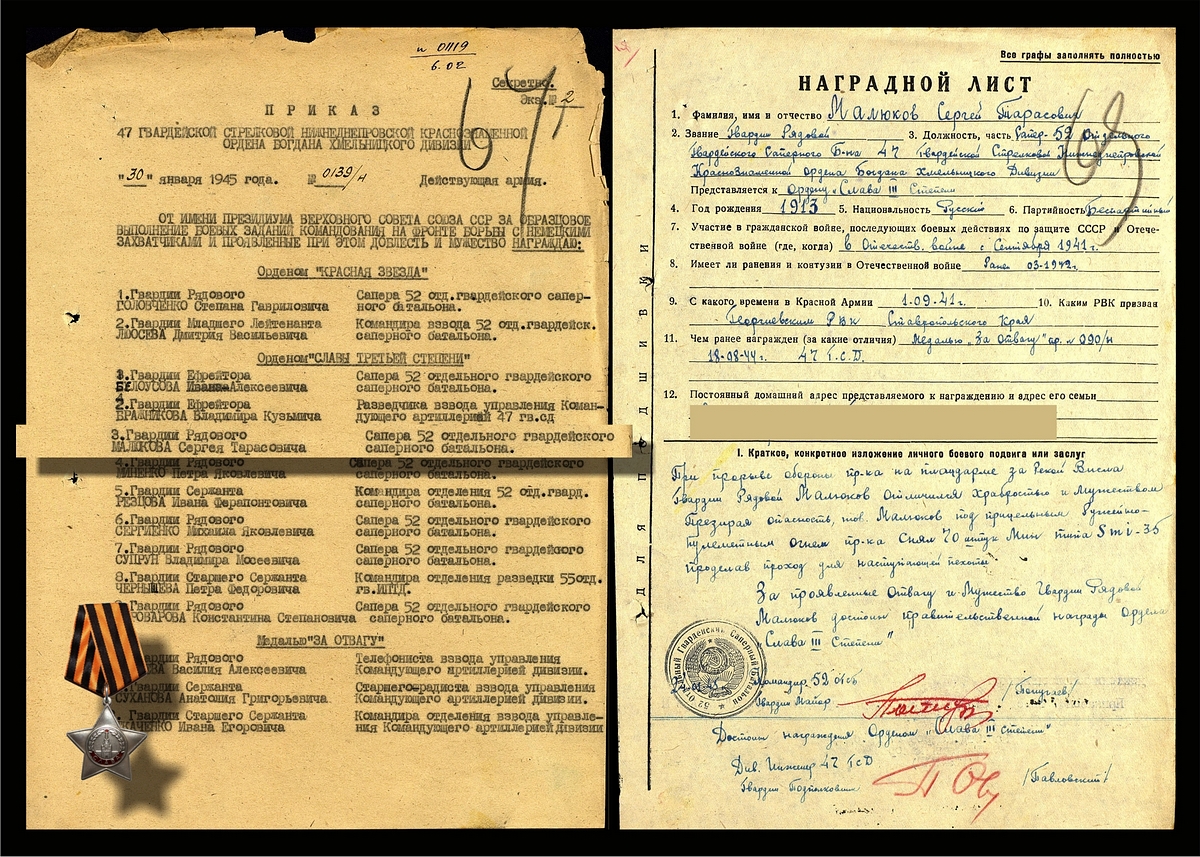 п 0119
6.02
Секретно.
Экз.№ 2
ПРИКАЗ
47 ГВАРДЕЙСКОЙ СТРЕЛКОВОЙ НИЖНЕДНЕПРОВСКОЙ КРАСНОЗНАМЕННОЙ
ОРДЕНА БОГДАНА ХМЕЛЬНИЦКОГО ДИВИЗИИ
"30" января 1945 года. № 0139/н Действующая армия.
ОТ ИМЕНИ ПРЕЗИДИУМА ВЕРХОВНОГО СОВЕТА СОЮЗА ССР ЗА ОБРАЗЦОВОЕ
ВЫПОЛНЕНИЕ БОЕВЫХ ЗАДАНИЙ КОМАНДОВАНИЯ НА ФРОНТЕ БОРЬБЫ С НЕМЕЦКИМИ
ЗАХВАТЧИКАМИ И ПРОЯВЛЕННЫЕ ПРИ ЭТОМ ДОБЛЕСТЬ И МУЖЕСТВО НАГРАЖДАЮ:
Орденом "КРАСНАЯ ЗВЕЗДА"
1.Гвардии Рядового Сапера 52 отд.гвардейского сапер-
ГОЛОВЧЕНКО Степана Гавриловича ного батальона.
2.Гвардии Младшего Лейтенанта Командира взвода 52 отд.гвардейск.
ЛЮОСЕВА Дмитрия Васильевича саперного батальона.
Орденом"СЛАВЫ ТРЕТЬЕЙ СТЕПЕНИ"
1.Гвардии Ефрейтора Сапера 52 отдельного гвардейского
БЕЛОУСОВА Ивана Алексеевича саперного батальона.
2.Гвардии Ефрейтора Разведчика взвода управления Коман-
БРАЖНИКОВА Владимира Кузьмича дующего артиллерией 47 гв.сд
3.Гвардии Рядового Сапера 52 отдельного гвардейского
МАЛЮКОВА Сергея Тарасовича саперного батальона.
4.Гвардии Рядового Сапера 52 отдельного гвардейского
МИНЕНКО Петра Яковлевича саперного батальона.
5.Гвардии Сержанта Командира отделения 52 отд.гвард.
РЕЗЦОВА Ивана Ферапонтовича саперного батальона.
6.Гвардии Рядового Сапера 52 отдельного гвардейского
СЕРГИЕНКО Михаила Яковлевича саперного батальона.
7.Гвардии Рядового Сапера 52 отдельного гвардейского
СУПРУН Владимира Мосеевича саперного батальона.
8.Гвардии Старшего Сержанта Командира отделения разведки 55отд.
ЧЕРНЫШЕВА Петра Федоровича гв.ИПТД.
Гвардии Рядового Сапера 52 отдельного гвардейского
РОВАРОВА Константина Степановича саперного батальона.
Медалью"ЗА ОТВАГУ"
Гвардии Рядового Телефониста взвода управления
Василия Алексеевича Командующего артиллерией дивизии.
Гвардии Сержанта Старшего-радиста взвода управления
СУХАНОВА Анатолия Григорьевича Командующего артиллерией дивизии.
Гвардии Старшего Сержанта Командира отделения взвода управле-
КАЧЕНКО Ивана Егоровича ния Командующего артиллерией дивизии
Все графы заполнять полностью
НАГРАДНОЙ ЛИСТ
1. Фамилия, имя и отчество Малюков Сергей Тарасович
2. Звание Гвардии Рядовой 3. Должность, часть Сапер- 52 отдельного
Гвардейского Саперного Б-на 47 Гвардейской Стрелковой Нижнеднепровской
Краснознаменной ордена Богдана Хмельницкого Дивизии
Представляется к Ордену „Слава III Степени
4. Год рождения 1913 5. Национальность Русский 6. Партийность Беспартийный
7. Участие в гражданской войне, последующих боевых действиях по защите СССР и Отече-
ственной войне (где, когда) в Отечеств. войне с Сентября 1941г.
8. Имеет ли ранения и контузии в Отечественной войне Ранен 03-1942г.
9. С какого времени в Красной Армии 1.09.41г. 10. Каким РВК призван
Георгиевским РВК Ставропольского Края
11. Чем ранее награжден (за какие отличия) Медалью „За Отвагу" пр. № 090/н
18-08-44г. 47 Г.С.Д.
12. Постоянный домашний адрес представляемого к награждению и адрес его семьи
I. Краткое, конкретное изложение личного боевого подвига или заслуг
При прорыве обороны пр-ка на плацдарме за рекой Висла
Гвардии Рядовой Малюков отличился храбростью и мужеством
Презирая опасность, тов. Малюков под прицельным ружейно-
пулеметным огнем пр-ка снял 70 штук мин типа Smi-35
проделав проход для наступающей пехоты.
За проявленные Отвагу и Мужество Гвардии Рядовой
Малюков достоин правительственной награды Ордена
„Слава III Степени"
Командир 52 огсб
Гвардии Майор /Полугаев/
Достоин награждения Орденом „Слава III степени"
Див. Инженер 47 ГсД
Гвардии Подполковник /Павловский/
ДЛЯ ПОДШИВКИ